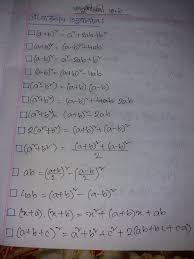 □(a+b)² = a²+2ab+b²
□(a+b)² = (a-b)²+4ab
□(a-b)² = a²-2ab+b²
□(a-b)² = (a+b)²-4ab
□(a²-b²) = (a+b) (a-b)
□(a²+b²) = (a-b)²+ 2ab
□(a²+b²) = (a+b)²-2ab
□ 2(a²+b²) = (a+b)²+(a-b)²
□(a²+b²) = (a+b)²+(a-b)²/2
□ ab = (a+b/2)² - (a-b/2)²
□ 4ab = (a+b)² - (a-b)²
□ (x+a) (x+b) = x²+(a+b)x+ab
□ (a+b+c)² = a²+b²+c²+2(ab+bc+ca)